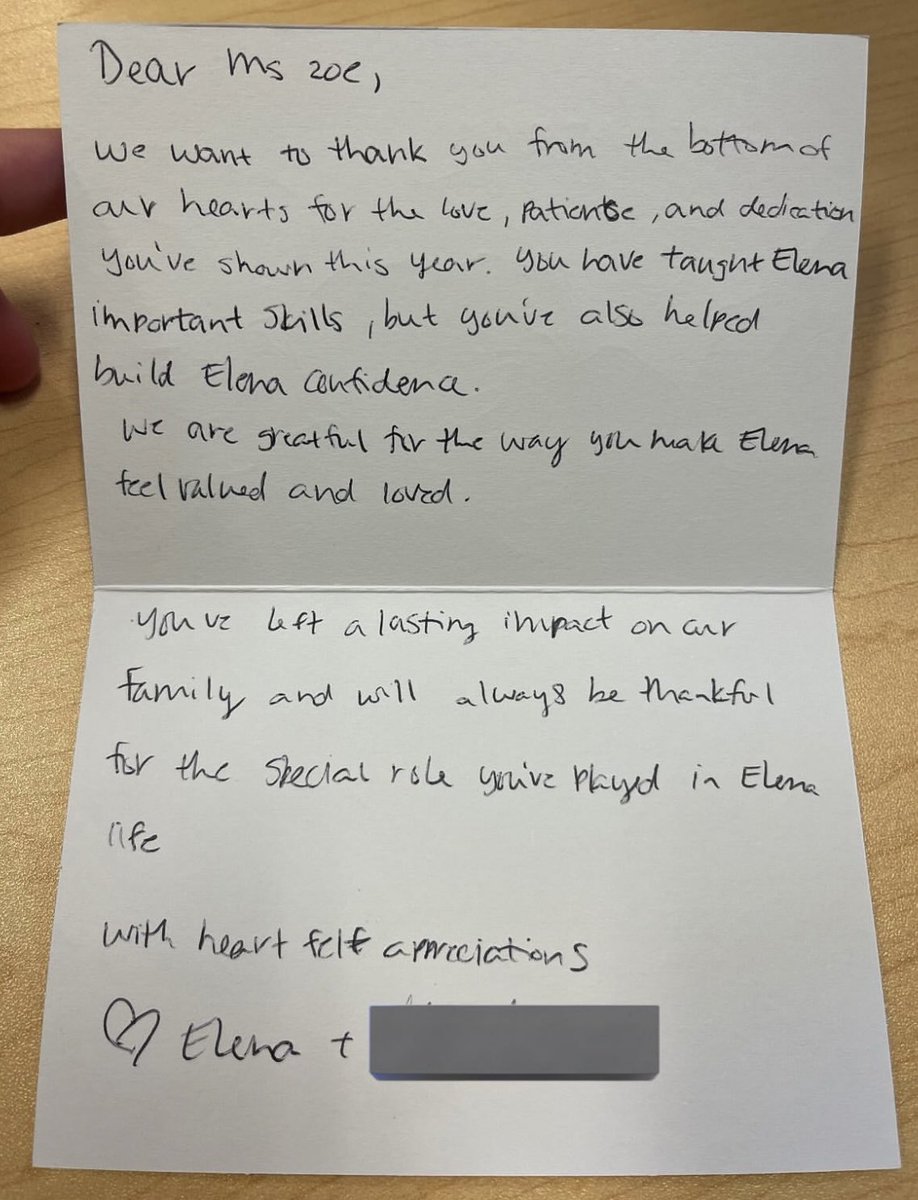 Dear Ms Zoe,
We want to thank you from the bottom of
our hearts for the love, patience, and dedication
you've shown this year. You have taught Elena
important skills, but you've also helped
build Elena confidence.
We are greatful for the way you make Elena
feel valued and loved.
You've left a lasting impact on our
family and will always be thankful
for the special role you've played in Elena
life
with heart felt appreciations
Elena +